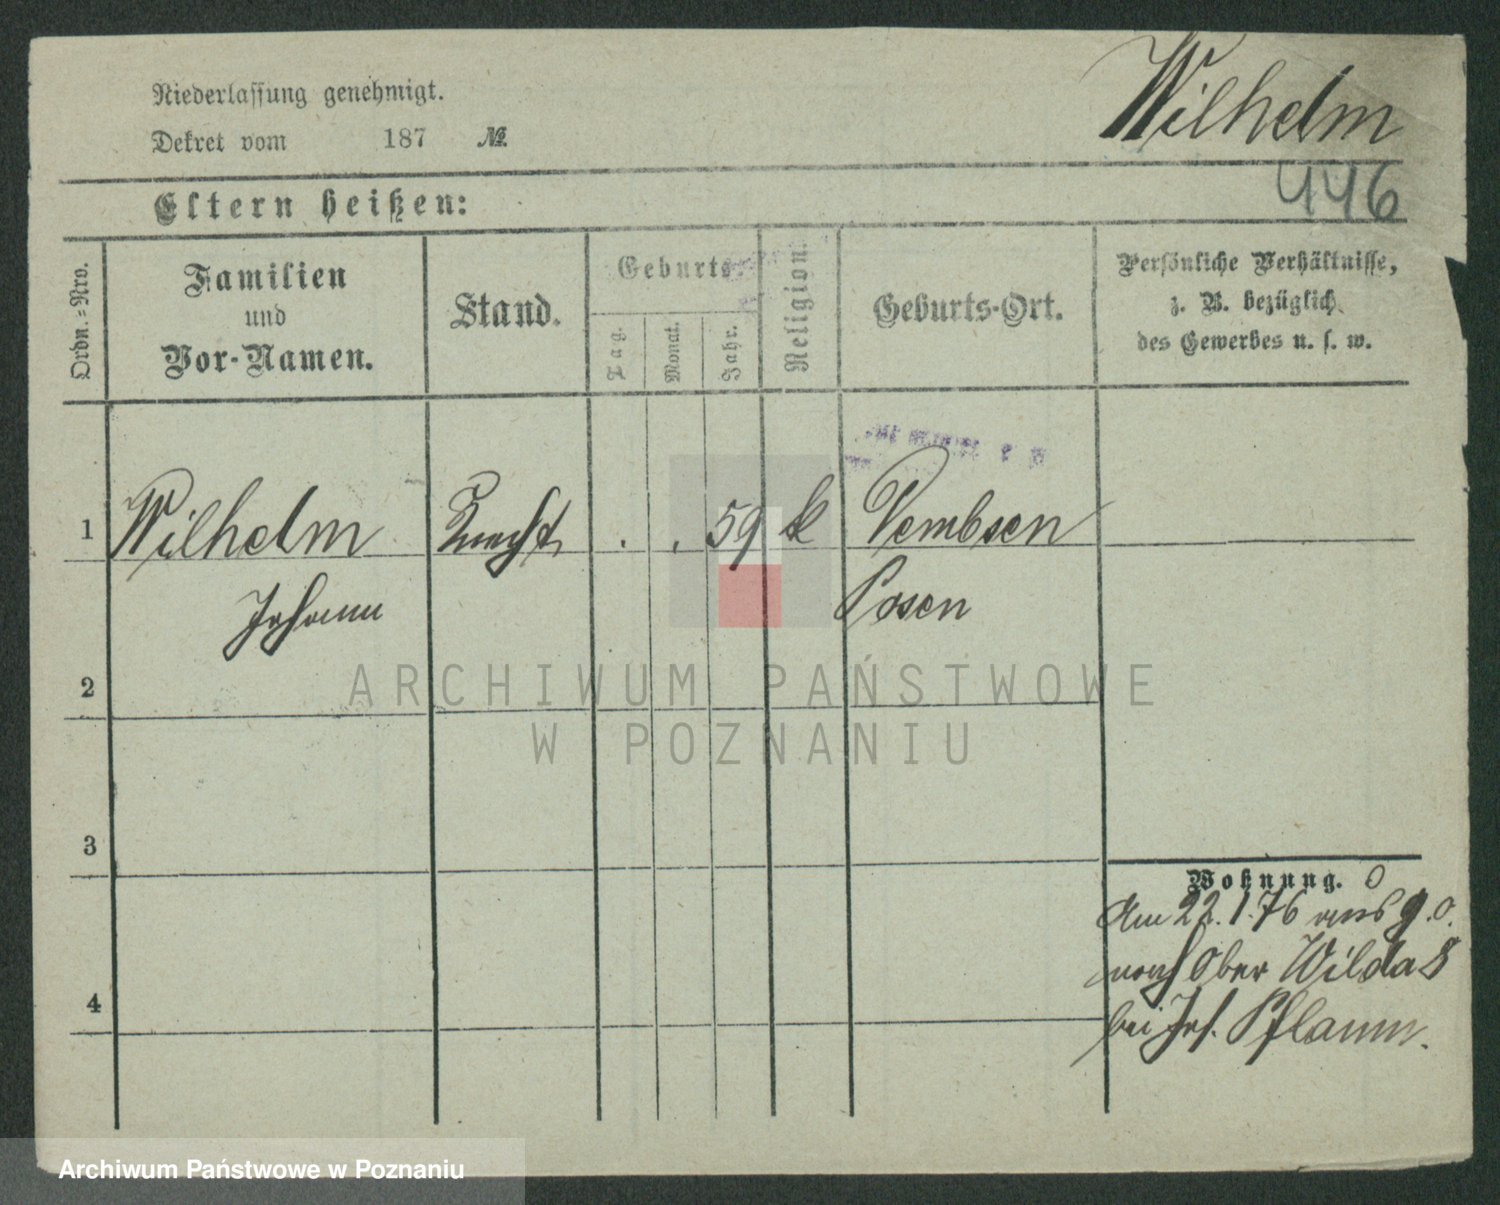 Wilhelm
Niederlassung genehmigt.
Dekret vom 187 №.
446
Eltern heißen:
Ordn.=Nro.
Familien
und
Vor-Namen.
Stand.
Geburts-
Tag.
Monat.
Jahr.
Religion.
Geburts-Ort.
Persönliche Verhältnisse,
z. B. bezüglich
des Gewerbes u. s. w.
1 Wilhelm Knecht . . 59 k Dembsen
Johann Posen
2
3
4
Wohnung.
Am 22.1.76 aus g.o.
nach Ober Wilda 8
bei Jos. Pflaum.
ARCHIWUM PAŃSTWOWE
W POZNANIU
Archiwum Państwowe w Poznaniu